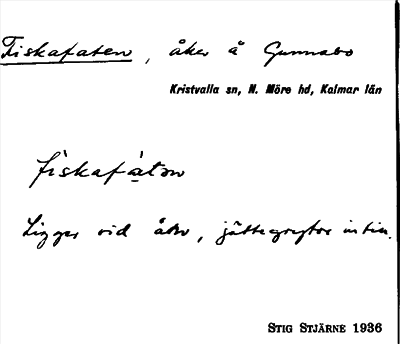 Fiskafaten, åker å Gunnabo
Kristvalla sn, N. Möre hd, Kalmar län
fiskafàtən
Ligger vid åkr, jättegrytor intill.
STIG STJÄRNE 1936